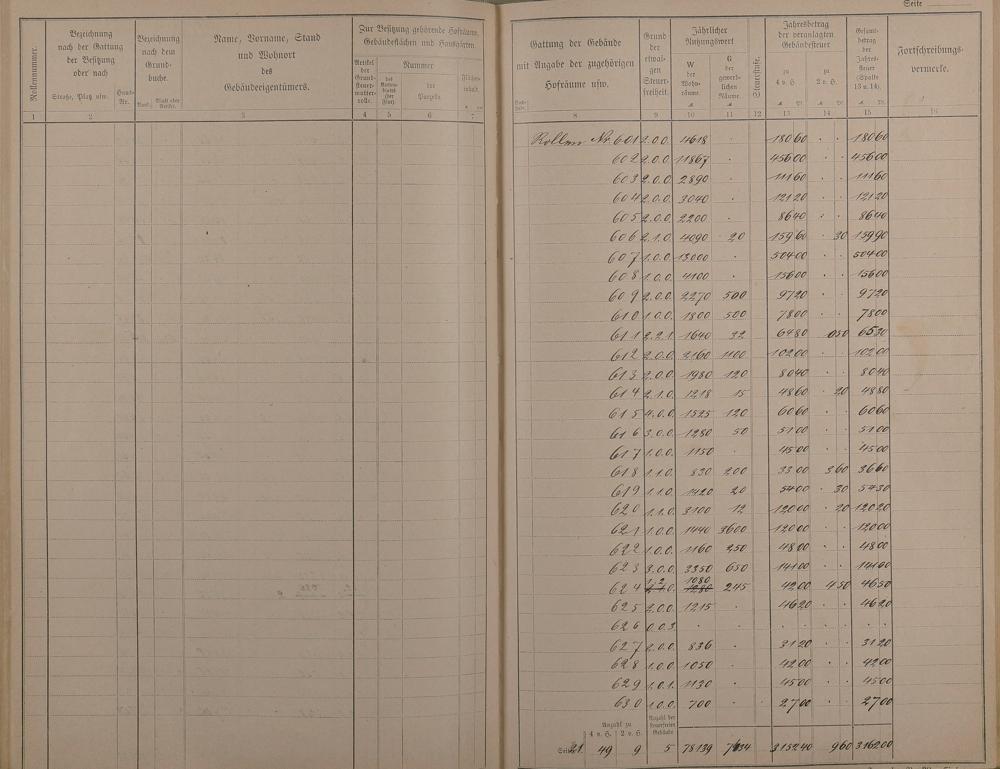 Seite
Rollennummer.
Bezeichnung
nach der Gattung
der Besitzung
oder nach
Straße, Platz usw.
Haus-
Nr.
Bezeichnung
nach dem
Grund-
buche.
Band.
Blatt oder
Artikel.
Name, Vorname, Stand
und Wohnort
des
Gebäudeeigentümers.
Zur Besitzung gehörende Hofräume,
Gebäudeflächen und Hausgärten.
Artikel
der
Grund-
steuer-
mutter-
rolle.
Nummer
des
Karten-
blatts
(der
Flur).
der
Parzelle.
Flächen-
inhalt.
Gattung der Gebäude
mit Angabe der zugehörigen
Hofräume usw.
Grund
der
etwai-
gen
Steuer-
freiheit.
Jährlicher
Nutzungswert
W
der
Wohn-
räume.
G
der
gewerb-
lichen
Räume.
Steuerstufe.
Jahresbetrag
der veranlagten
Gebäudesteuer
zu
4 v. H.
zu
2 v. H.
Gesamt-
betrag
der
Jahres-
steuer
(Spalte
13 u. 14).
Fortschreibungs-
vermerke.
1 2 3 4 5 6 7 8 9 10 11 12 13 14 15 16
Rollen Nr. 601 2.0.0. 4618 . 180 60 . . 180 60
602 2.0.0. 11867 . 456 00 . . 456 00
603 2.0.0. 2890 . 111 60 . . 111 60
604 2.0.0. 3040 . 121 20 . . 121 20
605 2.0.0. 2200 . 86 40 . . 86 40
606 2.1.0. 4090 20 159 60 . 30 159 90
607 1.0.0. 13000 . 504 00 . . 504 00
608 1.0.0. 4100 . 156 00 . . 156 00
609 2.0.0. 2270 500 97 20 . . 97 20
610 1.0.0. 1800 500 78 00 . . 78 00
611 2.2.1. 1640 32 64 80 . 50 65 30
612 2.0.0. 2160 1100 102 00 . . 102 00
613 2.0.0. 1980 120 80 40 . . 80 40
614 2.1.0. 1218 15 48 60 . 20 48 80
615 4.0.0. 1525 120 60 60 . . 60 60
616 3.0.0. 1280 50 51 00 . . 51 00
617 1.0.0. 1150 . 45 00 . . 45 00
618 1.1.0. 830 200 33 00 3 60 36 60
619 1.1.0. 1420 20 54 00 . 30 54 30
620 1.1.0. 3100 12 120 00 . 20 120 20
621 1.0.0. 1440 3600 120 00 . . 120 00
622 1.0.0. 1160 250 48 00 . . 48 00
623 3.0.0. 3350 650 141 00 . . 141 00
1.2 1080
624 2.1.0. 1280 245 42 00 4 50 46 50
625 2.0.0. 1215 . 46 20 . . 46 20
626 0.0.3. . . . . . .
627 2.0.0. 836 . 31 20 . . 31 20
628 1.0.0. 1050 . 42 00 . . 42 00
629 1.0.1. 1130 . 45 00 . . 45 00
630 1.0.0. 700 . 27 00 . . 27 00
Anzahl zu
4 v. H. 2 v. H.
Anzahl der
steuerfreien
Gebäude
Seite 21. 49 9 5 78139 7434 3152 40 9 60 3162 00